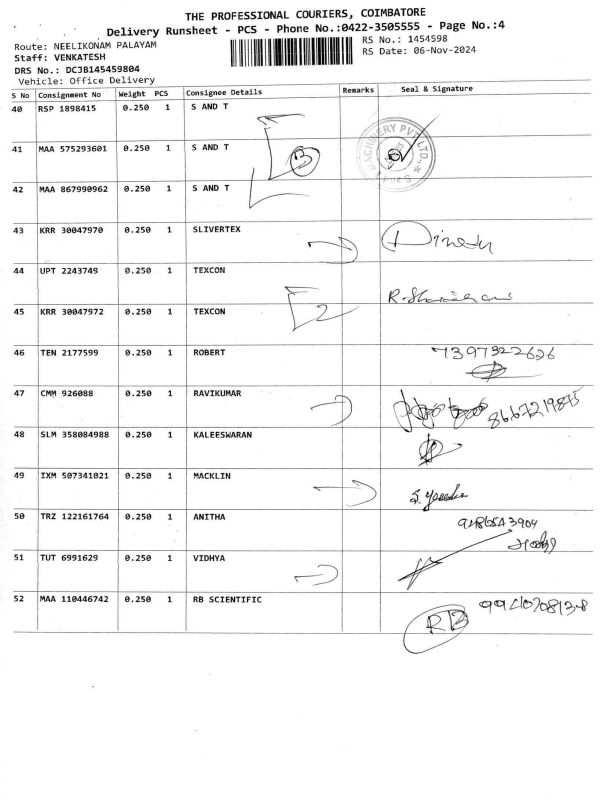 THE PROFESSIONAL COURIERS, COIMBATORE
Delivery Runsheet - PCS - Phone No.:0422-3505555 - Page No.:4
Route: NEELIKONAM PALAYAM
RS No.: 1454598
Staff: VENKATESH
RS Date: 06-Nov-2024
DRS No.: DCJB145459804
Vehicle: Office Delivery
S No Consignment No Weight PCS Consignee Details Remarks Seal & Signature
40 RSP 1898415 0.250 1 S AND T
MACHINERY PVT LTD.,
41 MAA 575293601 0.250 1 S AND T
3
42 MAA 867990962 0.250 1 S AND T
43 KRR 30047970 0.250 1 SLIVERTEX
Dinesh
44 UPT 2243749 0.250 1 TEXCON
45 KRR 30047972 0.250 1 TEXCON
2
46 TEN 2177599 0.250 1 ROBERT 7397322626
47 CMM 926088 0.250 1 RAVIKUMAR
8667219875
48 SLM 358084988 0.250 1 KALEESWARAN
49 IXM 507341021 0.250 1 MACKLIN
50 TRZ 122161764 0.250 1 ANITHA
51 TUT 6991629 0.250 1 VIDHYA
52 MAA 110446742 0.250 1 RB SCIENTIFIC
RB